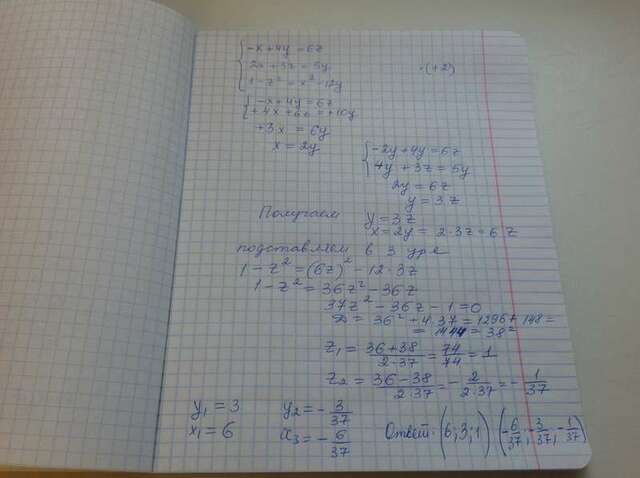 -x+4y=6z
2x+3z=5y ·(+2)
1-z²=x²-12y
-x+4y=6z
+4x+6z=+10y
+3x=6y
x=2y
-2y+4y=6z
4y+3z=5y
2y=6z
y=3z
Получаем y=3z
x=2y=2·3z=6z
подставляем в 3 ур-е
1-z²=(6z)²-12·3z
1-z²=36z²-36z
37z²-36z-1=0
D=36²+4·37=1296+148=
=1444=38²
z₁=36+38/2·37=74/74=1
z₂=36-38/2·37=-2/2·37=-1/37
y₁=3 y₂=-3/37
x₁=6 x₃=-6/37 Ответ: (6;3;1) (-6/37;-3/37;-1/37)